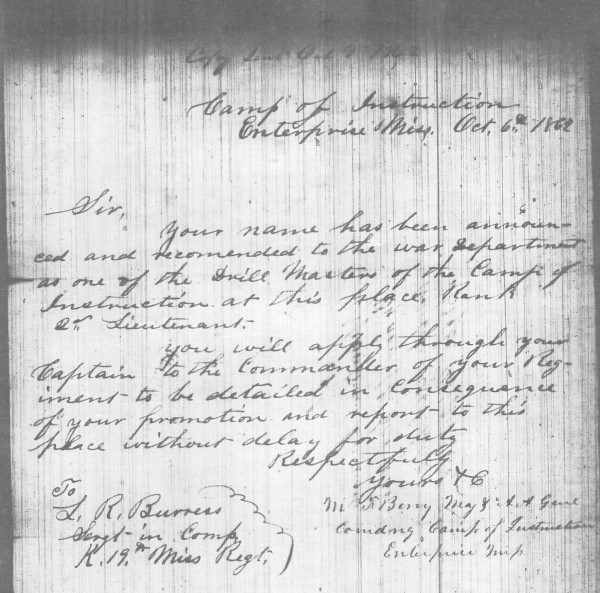 Copy Oct 9 1862
Camp of Instruction
Enterprise Miss. Oct. 6th 1862
Sir,
Your name has been announ-
ced and recomended to the war Department
as one of the Drill Masters of the Camp of
Instruction at this place. Rank
2nd Lieutenant.
You will apply through your
Captain to the Commander of your Reg-
iment to be detailed in Consequance
of your promotion and report to this
place without delay for duty
Respectfully
Yours &C
Berry Maj & A. A Genl
Comdng Camp of Instruction
Enterprise
To
L. R. Burress
Sergt in Comp,
K. 19.th Miss Regt.